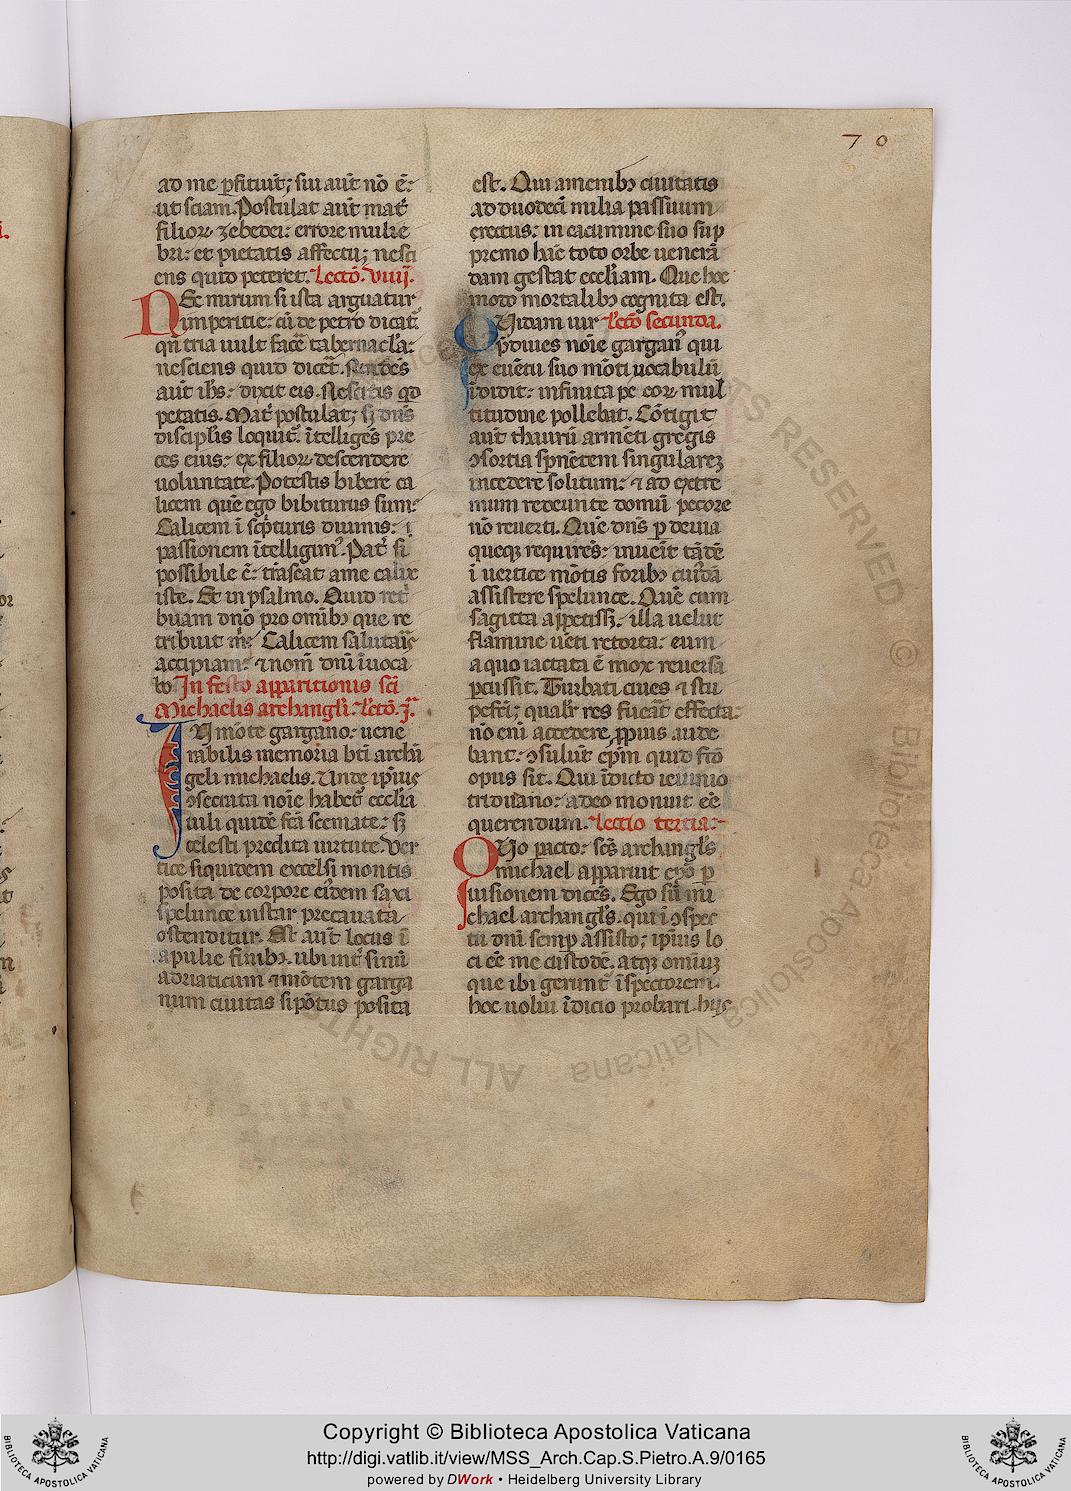 70
ad me ꝑfitiūt; sui aūt nō ē:
ut sciam. Postulat aūt mat̄
filioꝝ zebedei: errore mulie
bri: et pietatis affectu; nesci
ens quid peteret. Lectō. viiij.
NEc mirum si ista arguatur
imperitie: cū de petro dicat̄:
qn̄ tria uult facē tabernacl̄a:
nesciens quid dicēt. Rn̄dēs
aūt ih̄s: dixit eis. Nescitis qd
petatis. Mat̄ postulat; sꝫ dn̄s
discipl̄is loquit̄. ītelligēs pre
ces eius: ex filioꝝ descendere
uoluntate. Potestis bibere ca
licem quē ego bibiturus sum:
Calicem ī scͥpturis diuinis: ī
passionem ītelligimꝰ. Pat̄ si
possibile ē: trāseat a me calix
iste. Et in psalmo. Quid ret̄
buam dn̄o pro omībꝫ que re
tribuit m̄: Calicem salutaīs
accipiam: ⁊ nom̄ dn̄i īuoca
bo In festo apparitionis sc̄i
Michaelis archangl̄i. Lectō. j.ͣ
IN mōte gargano: uene
rabilis memoria bt̄i archā
geli michaelis. Unde ipīus
ↄsecrata noīe habet̄ eccl̄ia
uili quidē fc̄a scemate: sꝫ
celesti predita uirtute. Ver
tice siquidem excelsi montis
posita de corpore eīdem saxi
spelunce instar precauata
ostenditur. Est aūt locus ī
apulie finibꝫ. ubi int̄ sinū
adriaticum ⁊ mōtem garga
num ciuitas sipōtus posita
est. Qui a menibꝫ ciuitatis
ad duodecī milia passuum
erectus: in cacumine suo sup
premo hāc toto orbe uenerā
dam gestat eccl̄iam. Que hoc
modo mortalibꝫ cognita est.
QUidam uir Lectō secunda.
p̄diues noīe garganꝰ qui
ex euētu suo mōti uocabulū
īdidit: infinita pecoꝝ mul
titudine pollebat. Cōtigit
aūt thaurū armēti gregis
ↄsortia spn̄ētem singularez
incedere solitum: ⁊ ad extre
mum redeunte domū pecore
nō reuerti. Quē dn̄s ꝑ deuia
queqꝫ requirēs: inuēit tādē
ī uertice mōtis foribꝫ cuīdā
assistere spelunce. Quē cum
sagitta appetissꝫ: illa uelut
flamine uēti retorta: eum
a quo iactata ē mox reuersa
ꝑcussit. Turbati ciues ⁊ stu
pefc̄i; qualr̄ res fueāt effecta:
nō eni accedere ꝓpius aude
bant: ↄsulūt ep̄m quid fc̄o
opus sit. Qui īdicto ieiunio
triduano: a deo monuit eē
querendum. Lectio tertia:
QUo pacto: sc̄s archangl̄s
michael apparuit ep̄o ꝑ
uisionem dicēs. Ego sū mi
chael archangl̄s. qui ī ↄspec
tu dn̄i semꝑ assisto; ipīus lo
ci eē me custodē. atqꝫ omīuꝫ
que ibi gerunt̄ īspectorem
hoc uolui īdicio probari. hijs
ALL RIGHTS RESERVED © Biblioteca Apostolica Vaticana
Copyright © Biblioteca Apostolica Vaticana
http://digi.vatlib.it/view/MSS_Arch.Cap.S.Pietro.A.9/0165
powered by DWork • Heidelberg University Library
BIBLIOTECA APOSTOLICA VATICANA
BIBLIOTECA APOSTOLICA VATICANA